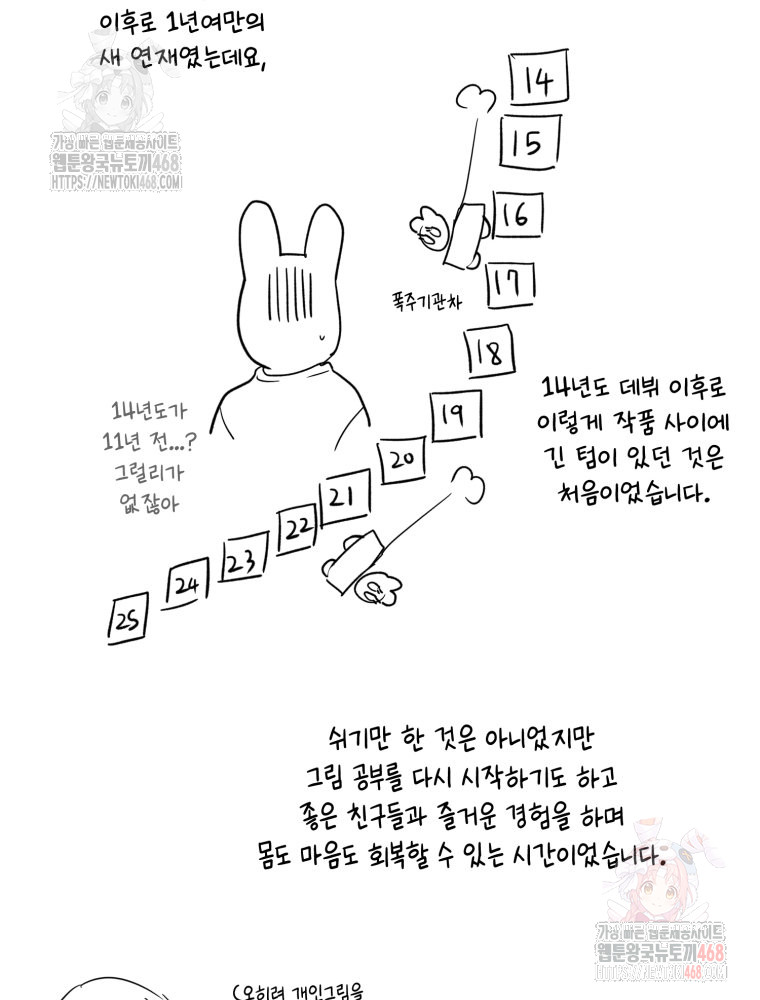 이후로 1년여만의
새 연재였는데요,
가장 빠른 웹툰제공사이트
웹툰왕국뉴토끼468
HTTPS://NEWTOKI468.COM
14
15
16
17
폭주기관차
18
14년도 데뷔 이후로
이렇게 작품 사이에
긴 텀이 있던 것은
처음이었습니다.
14년도가
11년 전...?
그럴리가
없잖아
19
20
21
22
23
24
25
쉬기만 한 것은 아니었지만
그림 공부를 다시 시작하기도 하고
좋은 친구들과 즐거운 경험을 하며
몸도 마음도 회복할 수 있는 시간이었습니다.
가장 빠른 웹툰제공사이트
웹툰왕국뉴토끼468
HTTPS://NEWTOKI468.COM
(오히려 개인그림을